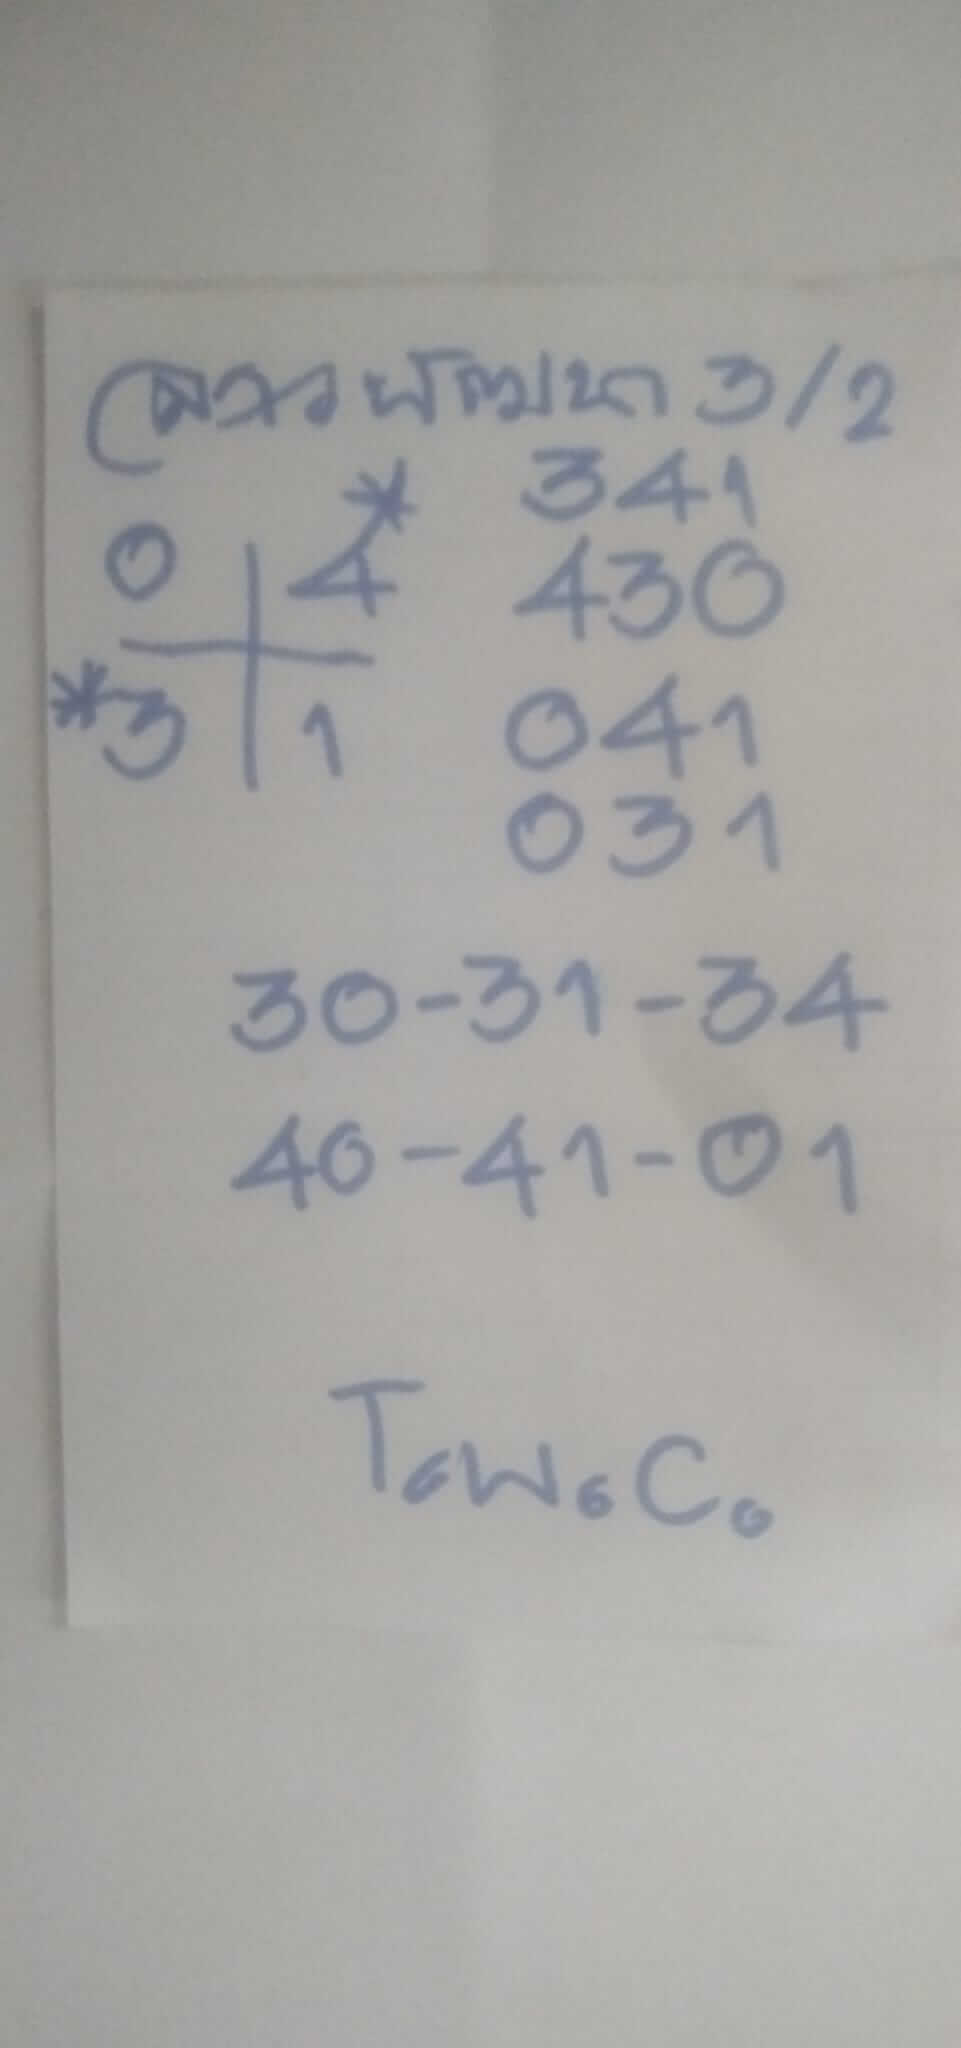 ลาวพัฒนา 3/2
* 341
0 4 430
*3 1 041
031
30-31-34
40-41-01